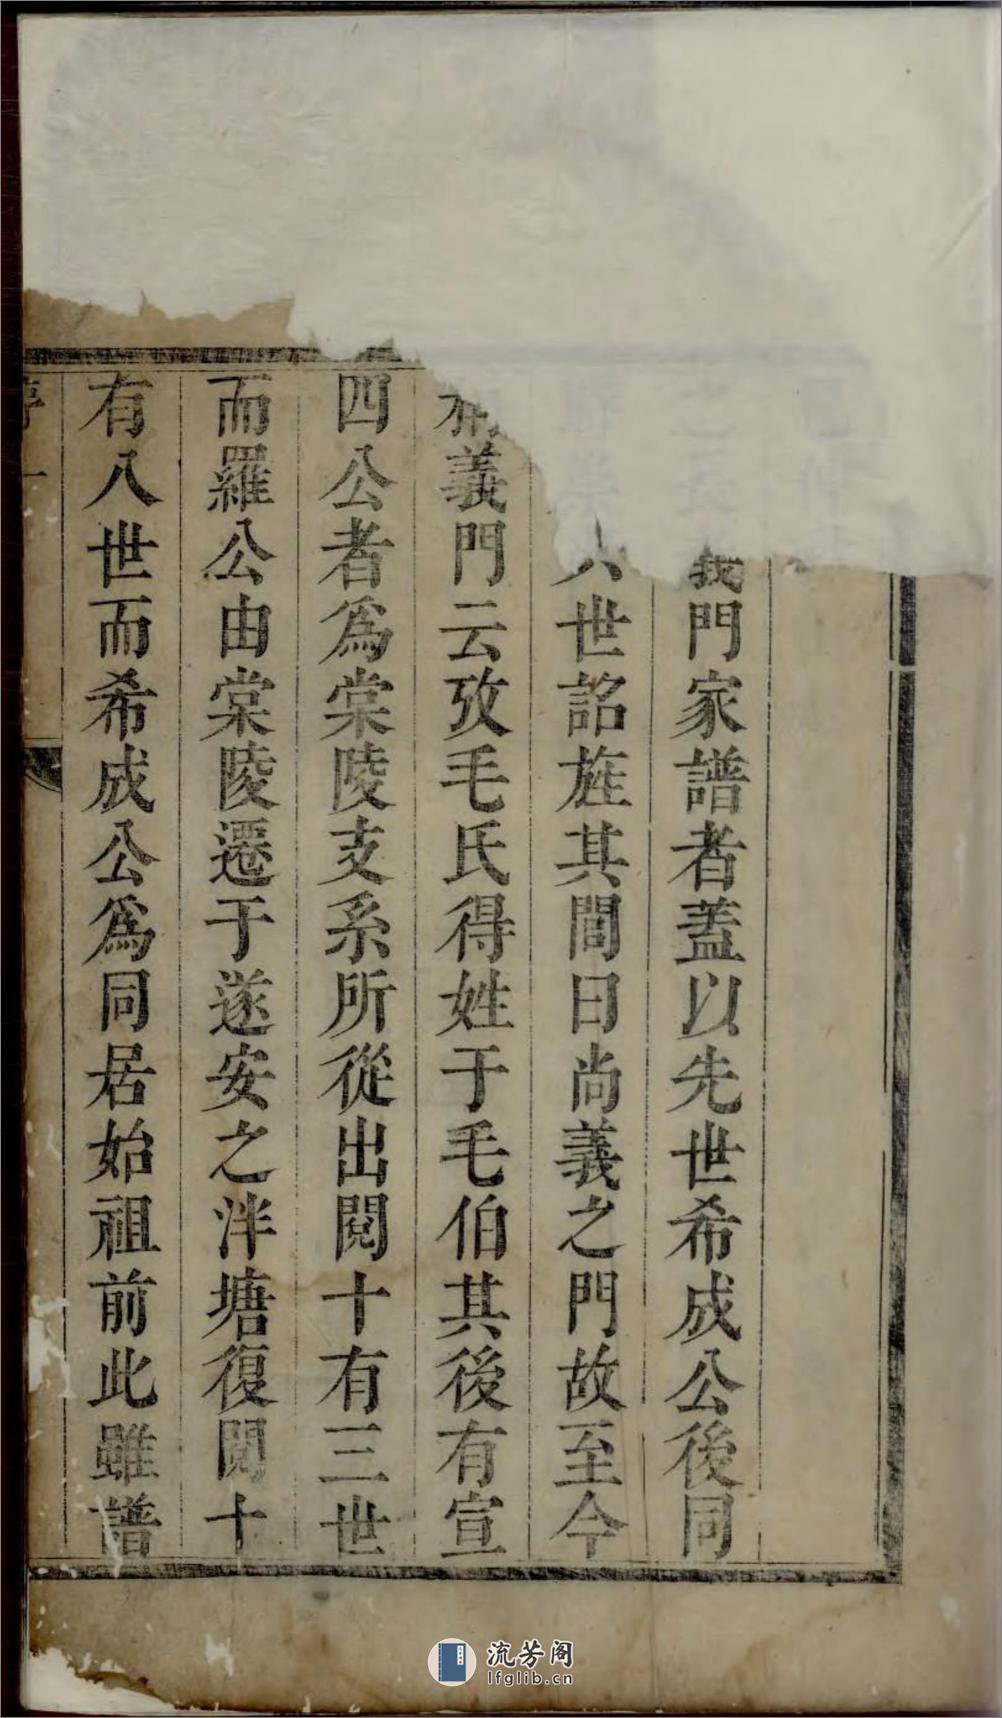 義門家譜者蓋以先世希成公後同
八世詔旌其間曰尚義之門故至今
稱義門云攷毛氏得姓于毛伯其後有宣
四公者爲棠陵支系所從出閱十有三世
而羅公由棠陵遷于遂安之泮塘復閱十
有八世而希成公爲同居始祖前此雖譜
流芳阁
lfglib.cn